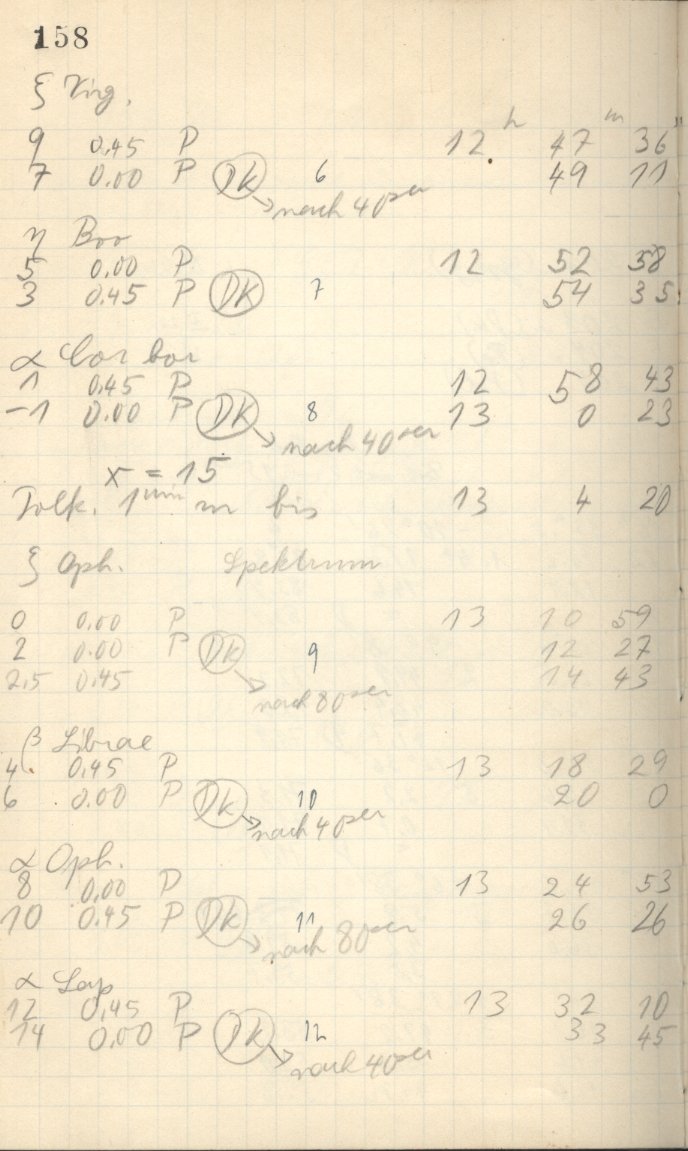 158
ξ Virg.
h m
9 0.45 P 12 47 36
7 0.00 P DK 6 49 11
nach 40sec
η Boo
5 0.00 P 12 52 58
3 0.45 P DK 7 54 35
α Cor bor
1 0.45 P 12 58 43
-1 0.00 P DK 8 13 0 23
nach 40sec
x = 15
1 min bis 13 4 20
ξ Oph. Spektrum
0 0.00 P 13 10 59
2 0.00 P DK 9 12 27
2,5 0.45 14 43
nach 80sec
β Librae
4 0.45 P 13 18 29
6 0.00 P DK 10 20 0
nach 40sec
α Oph.
8 0.00 P 13 24 53
10 0.45 P DK 11 26 26
nach 80sec
α
12 0.45 P 13 32 10
14 0.00 P DK 12 33 45
nach 40sec